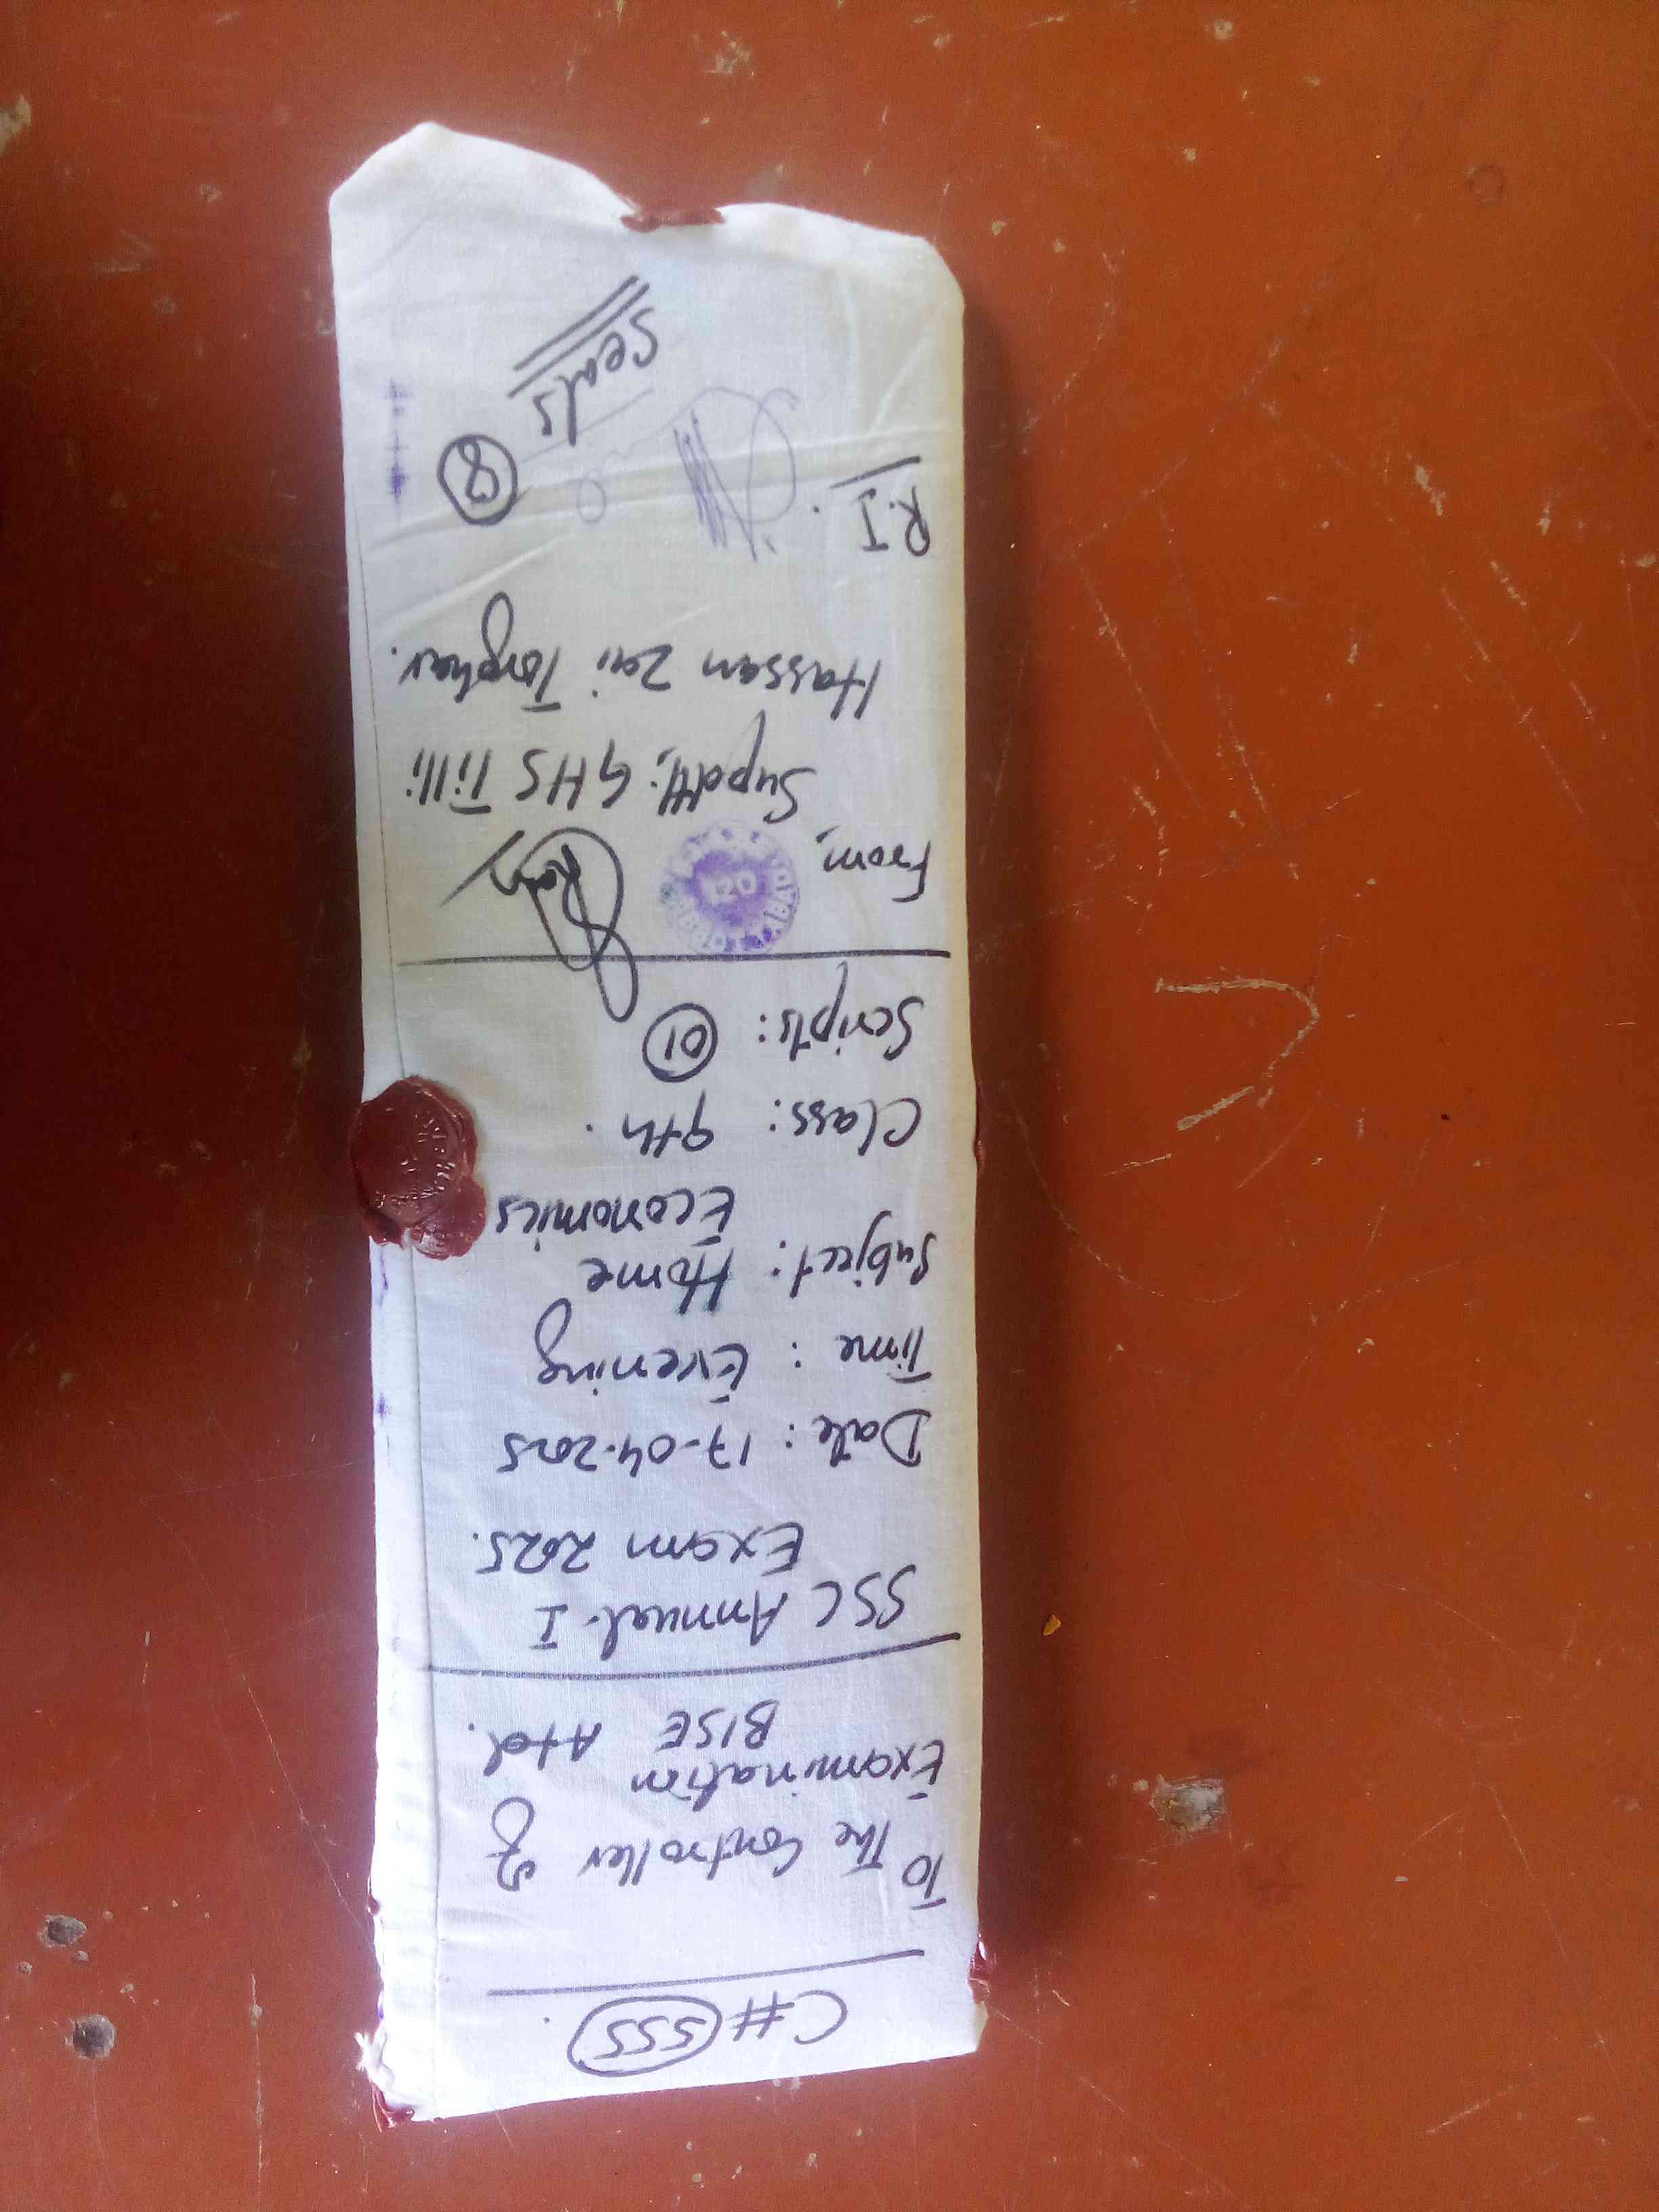 C# 555.
To The Controller of
Examination
BISE Atd.
SSC Annual-I
Exam 2025.
Date: 17-04-2025
Time: Evening
Subject: Home
Economics
Class: 9th.
Scripts: 01
From,
Supdtt: GHS Tilli
Hassan Zai Torghar.
R.I.
8
Seals